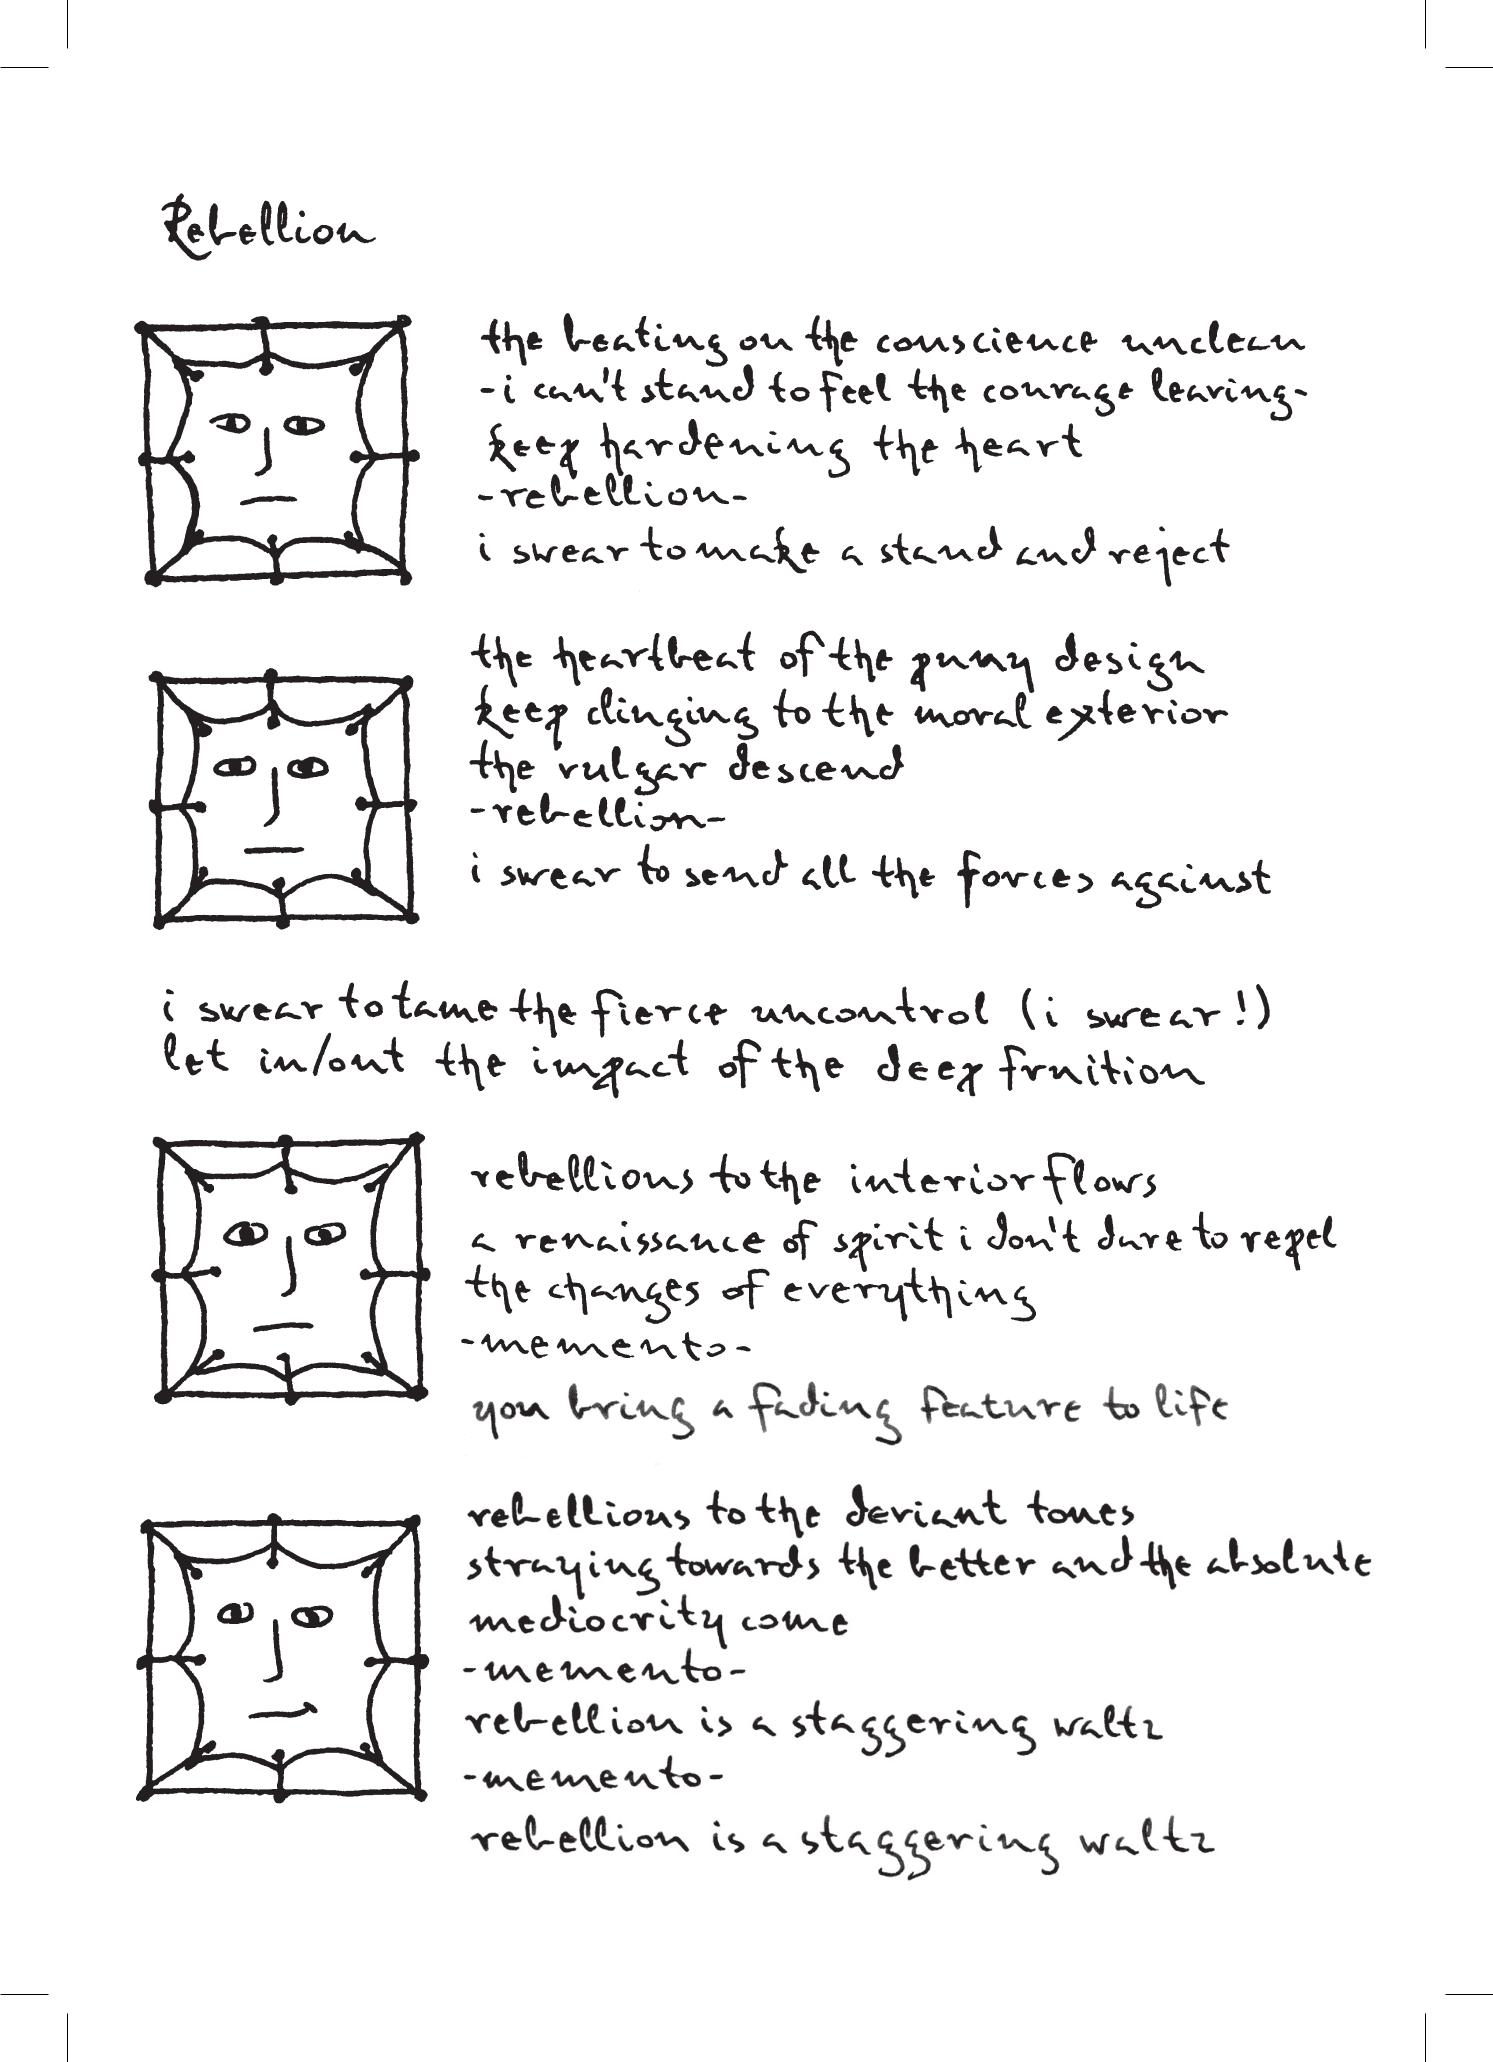 Rebellion
the beating on the conscience unclean
-i can't stand to feel the courage leaving-
keep hardening the heart
-rebellion-
i swear to make a stand and reject
the heartbeat of the puny design
keep clinging to the moral exterior
the vulgar descend
-rebellion-
i swear to send all the forces against
i swear to tame the fierce uncontrol (i swear!)
let in/out the impact of the deep fruition
rebellions to the interior flows
a renaissance of spirit i don't dare to repel
the changes of everything
-memento-
you bring a fading feature to life
rebellions to the deviant tones
straying towards the better and the absolute
mediocrity come
-memento-
rebellion is a staggering waltz
-memento-
rebellion is a staggering waltz